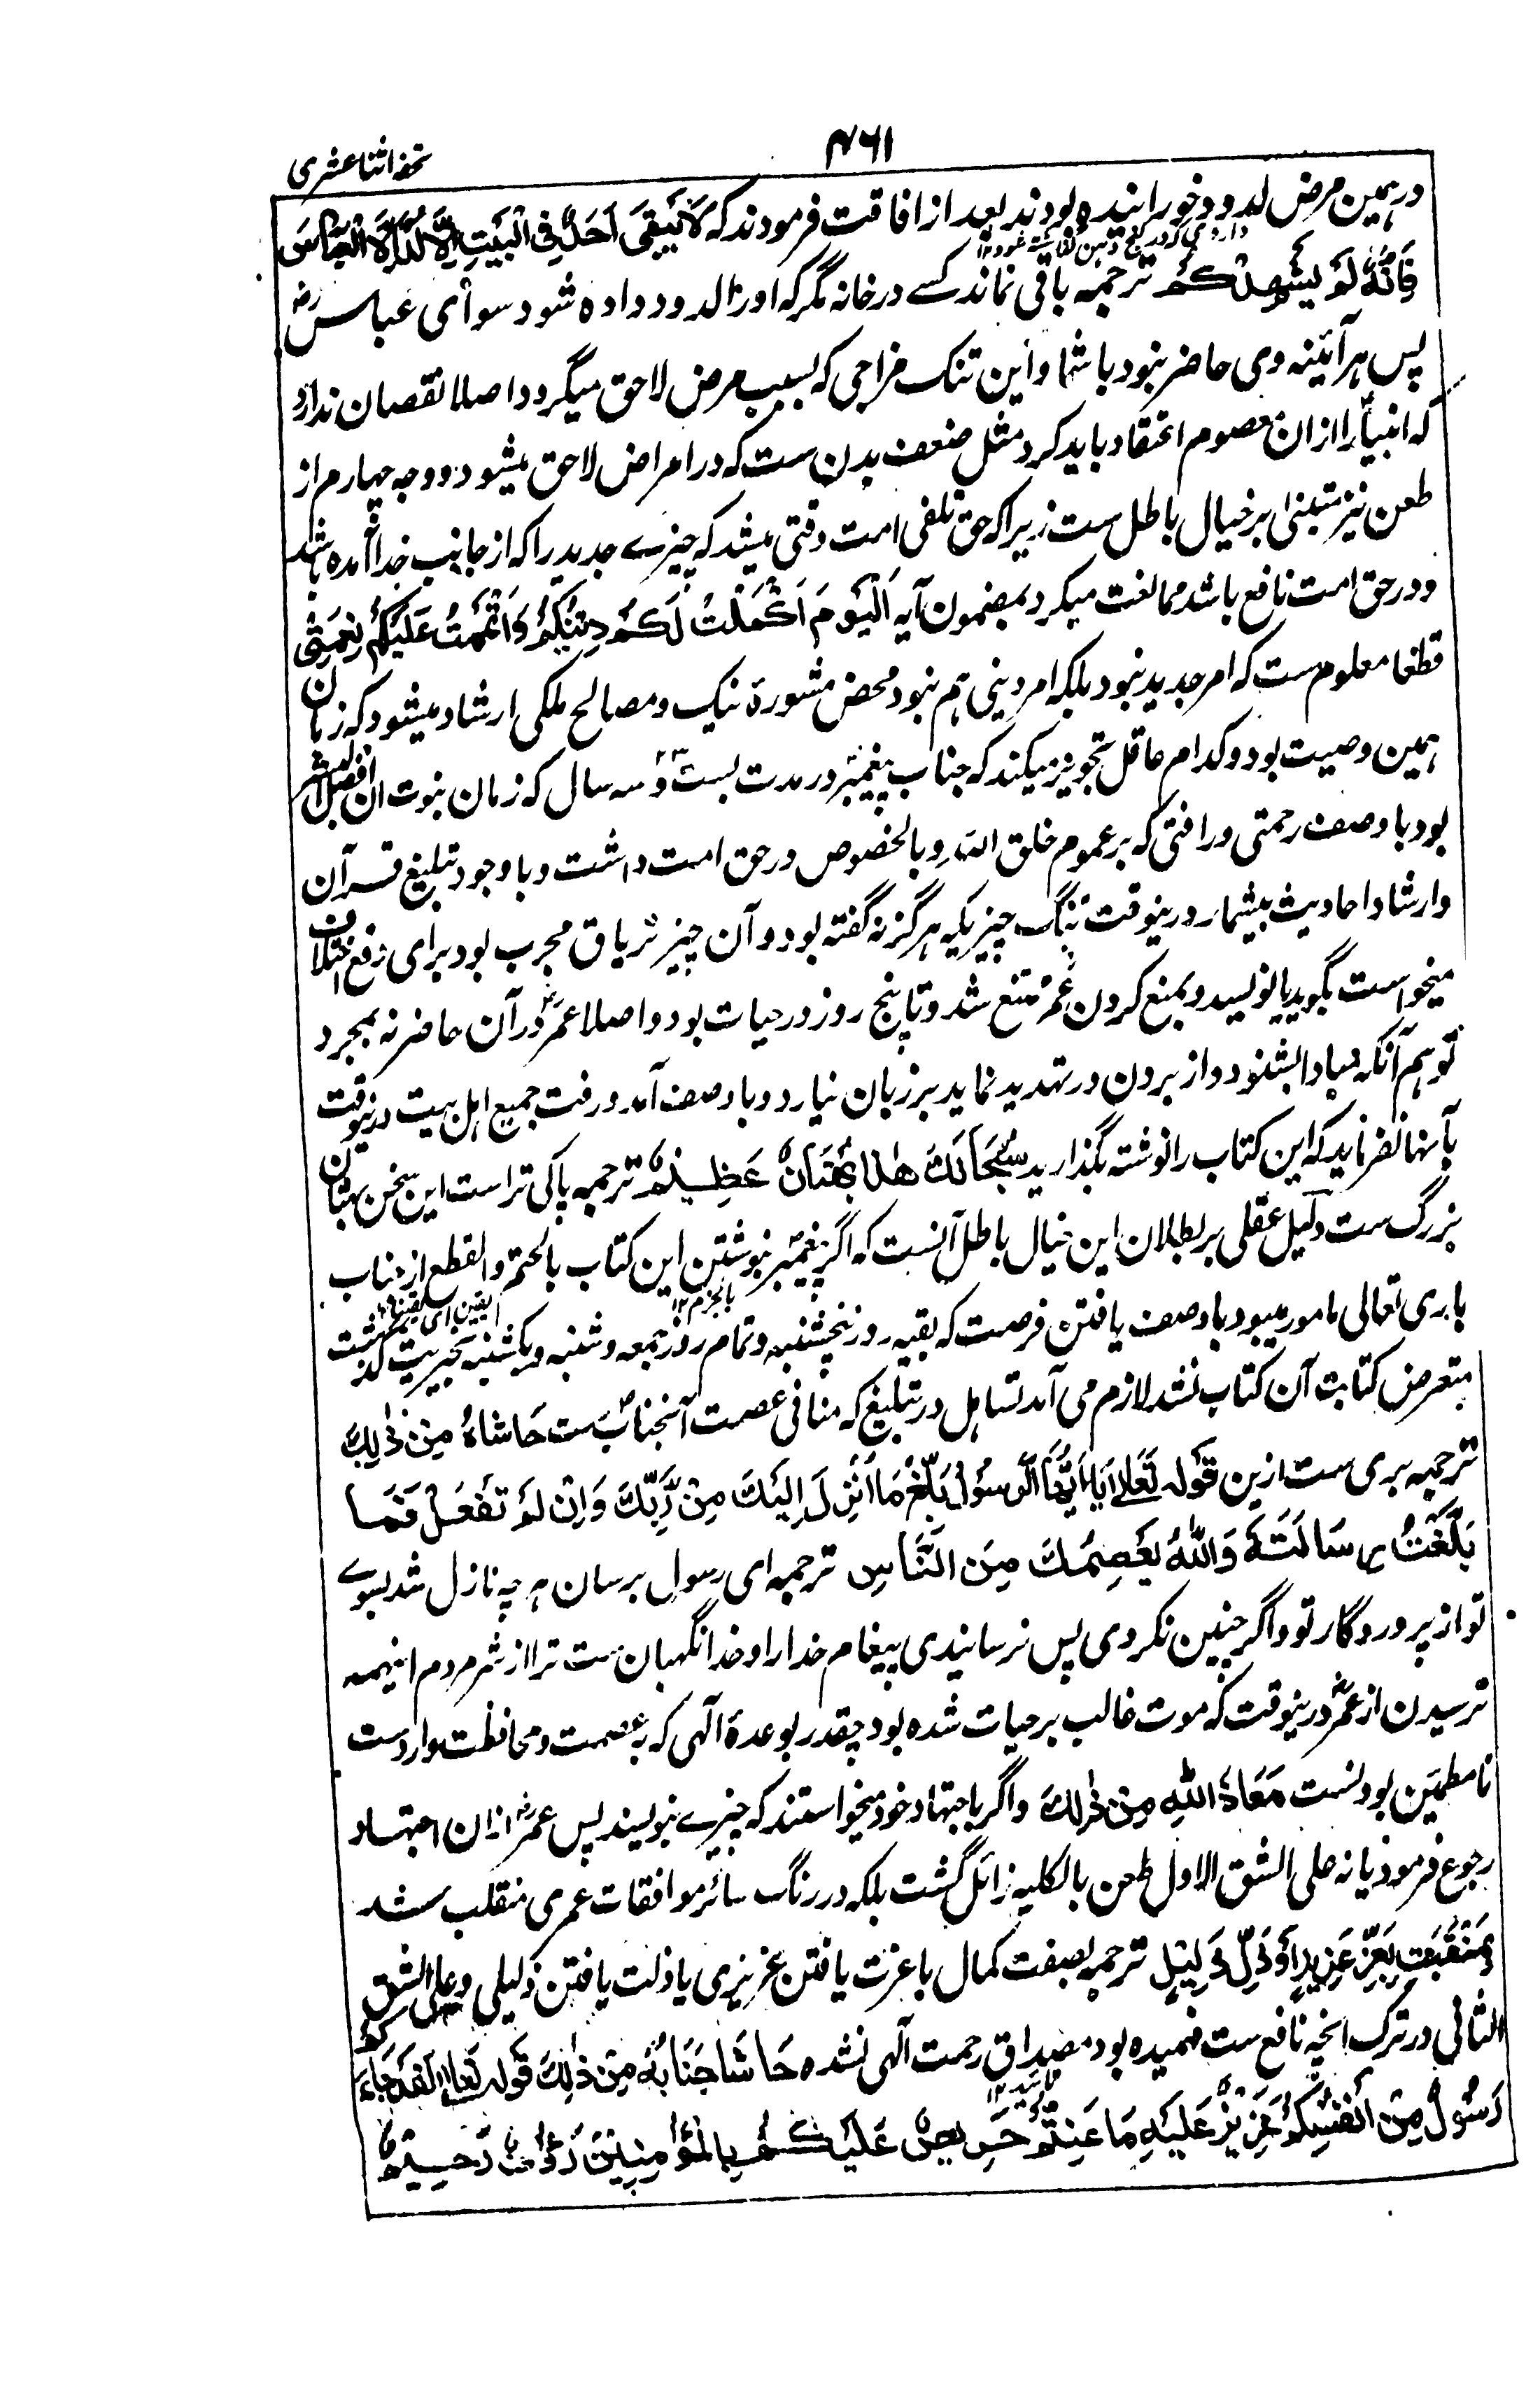 ۴۶۱
تحفه اثنا عشری
در همین مرض لدود خورانیده بودند بعد از افاقت فرمودند که لَا یَبْقیٰ اَحَدٌ فِی الْبَیْتِ اِلَّا لُدَّ اِلَّا الْعَبَّاسَ
فَاِنَّهُ لَمْ یَشْهَدْکُمْ ترجمه باقی نماند کسے در خانه مگر که او را لدود داده شود سوای عباس رض
پس هر آئینه وی حاضر نبود با شما و این تنک مزاجی که بسبب مرض لاحق میگردد اصلا نقصان ندارد
که انبیا را ازان معصوم اعتقاد باید کرد مثل ضعف بدن ست که در امراض لاحق میشود و وجه چهارم از
طعن نیز مبتنی بر خیال باطل ست زیرا که حق تلفی امت وقتی میشد که چیزے جدید را که از جانب خدا آمده باشد
و در حق امت نافع باشد ممالغت میکرد بمضمون آیه اَلْیَوْمَ اَکْمَلْتُ لَکُمْ دِیْنَکُمْ وَاَتْمَمْتُ عَلَیْکُمْ نِعْمَتِیْ
قطعا معلوم ست که امر جدید نبود بلکه امر دینی هم نبود محض مشورۀ نیک و مصالح ملکی ارشاد میشود که زمان
همین وصیت بود و کدام عاقل تجویز میکند که جناب پیغمبر در مدت بست و سه سال که زمان نبوت ان افضل البشر
بود با وصف رحمتی و رافتی که بر عموم خلق الله و بالخصوص در حق امت داشت و با وجود تبلیغ قرآن
و ارشاد احادیث بیشمار درینوقت تنگ چیزیکه هرگز نه گفته بود و آن چیز تریاق مجرب بود برای رفع اختلاف
میخواست بگوید یا نویسد و بمنع کردن عمر ممتنع شد و تا پنج روز در حیات بود و اصلا عمر در آن حاضر نه بمجرد
توهم آنکه مبادا بشنود و از بیرون در تهدید نماید بر زبان نیارد و با وصف آمد و رفت جمیع اهل بیت درینوقت
بآنها نفرماید که این کتاب را نوشته بگذارید سُبْحَانَكَ هٰذَا بُهْتَانٌ عَظِیْمٌ ترجمه پاکی تراست این سخن بهتان
بزرگ ست دلیل عقلی بر بطلان این خیال باطل آنست که اگر پیغمبر نبوشتن این کتاب بالحتم والقطع از جناب
باری تعالی مامور میبود با وصف یافتن فرصت که بقیه روز پنجشنبه و تمام روز جمعه و شنبه و یکشنبه بخیریت گذشت
متعرض کتابت آن کتاب نشد لازم می آمد تساهل در تبلیغ که منافی عصمت آنجناب ست حَاشَاهُ مِنْ ذٰلِكَ
ترجمه بری ست ازین قوله تَعَالیٰ یَا اَیُّهَا الرَّسُوْلُ بَلِّغْ مَا اُنْزِلَ اِلَیْكَ مِنْ رَّبِّكَ وَاِنْ لَمْ تَفْعَلْ فَمَا
بَلَّغْتَ رِسَالَتَهٗ وَاللّٰهُ یَعْصِمُكَ مِنَ النَّاسِ ترجمه ای رسول برسان هر چه نازل شد بسوے
تو از پروردگار تو و اگر چنین نکردی پس نرسانیدی پیغام خدا را و خدا نگهبان ست ترا از شر مردم اینهمه
ترسیدن از عمر درینوقت که موت غالب بر حیات شده بود چقدر بوعدۀ الهی که بعصمت و محافظت وارد ست
نا مطمئن بودنست مَعَاذَ اللّٰهِ مِنْ ذٰلِكَ و اگر باجتهاد خود میخواستند که چیزے نبویسند پس عمر ازان اجتهاد
رجوع فرمود یا نه علی الشق الاول طعن بالکلیه زائل گشت بلکه در رنگ سائر موافقات عمری منقلب شد
بِمَنْقَبَتِ بِعِزِّ عَزِیْزٍ اَوْ ذُلِّ ذَلِیْلٍ ترجمه بصفت کمال باعزت یافتن عزیزی یا ذلت یافتن ذلیلی و علی الشق
الثانی در ترک انچه نافع ست فهمیده بود مصداق رحمت الهی نشده حَاشَا جَنَابُهٗ مِنْ ذٰلِكَ قوله تَعَالیٰ لَقَدْ جَاءَکُمْ
رَسُوْلٌ مِنْ اَنْفُسِکُمْ عَزِیْزٌ عَلَیْهِ مَا عَنِتُّمْ حَرِیْصٌ عَلَیْکُمْ بِالْمُؤْمِنِیْنَ رَؤُفٌ رَّحِیْمٌ